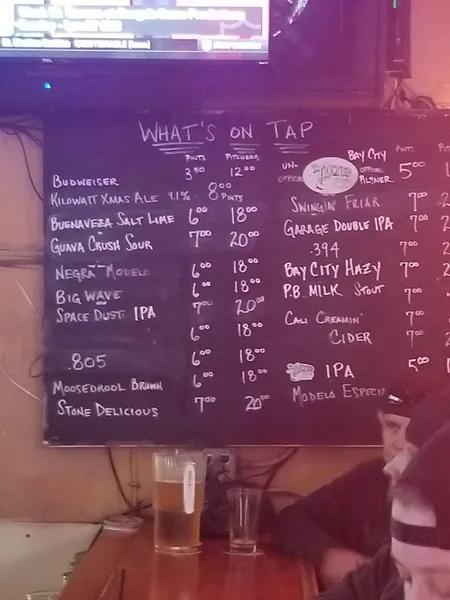 WHAT'S ON TAP
PINTS PITCHERS
BUDWEISER 3⁵⁰ 12⁰⁰
KILOWATT XMAS ALE 9.1% 8⁰⁰ PINTS
BUENAVEZA SALT LIME 6⁰⁰ 18⁰⁰
GUAVA CRUSH SOUR 7⁰⁰ 20⁰⁰
NEGRA MODELO 6⁰⁰ 18⁰⁰
BIG WAVE 6⁰⁰ 18⁰⁰
SPACE DUST IPA 7⁰⁰ 20⁰⁰
6⁰⁰ 18⁰⁰
.805 6⁰⁰ 18⁰⁰
MOOSEDROOL BROWN 6⁰⁰ 18⁰⁰
STONE DELICIOUS 7⁰⁰ 20⁰⁰
PINTS
UN-OFFICIAL BAY CITY OFFICIAL PILSNER 5⁰⁰
SWINGIN' FRIAR 7⁰⁰
GARAGE DOUBLE IPA 7⁰⁰
.394 7⁰⁰
BAY CITY HAZY 7⁰⁰
P.B. MILK STOUT 7⁰⁰
CALI CREAMIN' 7⁰⁰
CIDER 7⁰⁰
IPA 5⁰⁰
MODELO ESPECI